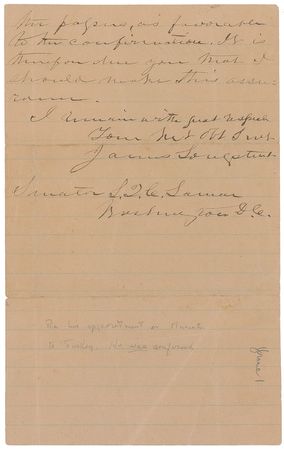 the papers, as favorable
to the confirmation. It is
therefore due you that I
should make this assu-
rance.
I remain with great respect
Your Mst Obt Svt
James Longstreet
Senator L. Q. C. Lamar
Washington D.C.
appointment as Minister
to Turkey. He was confirmed
June 1